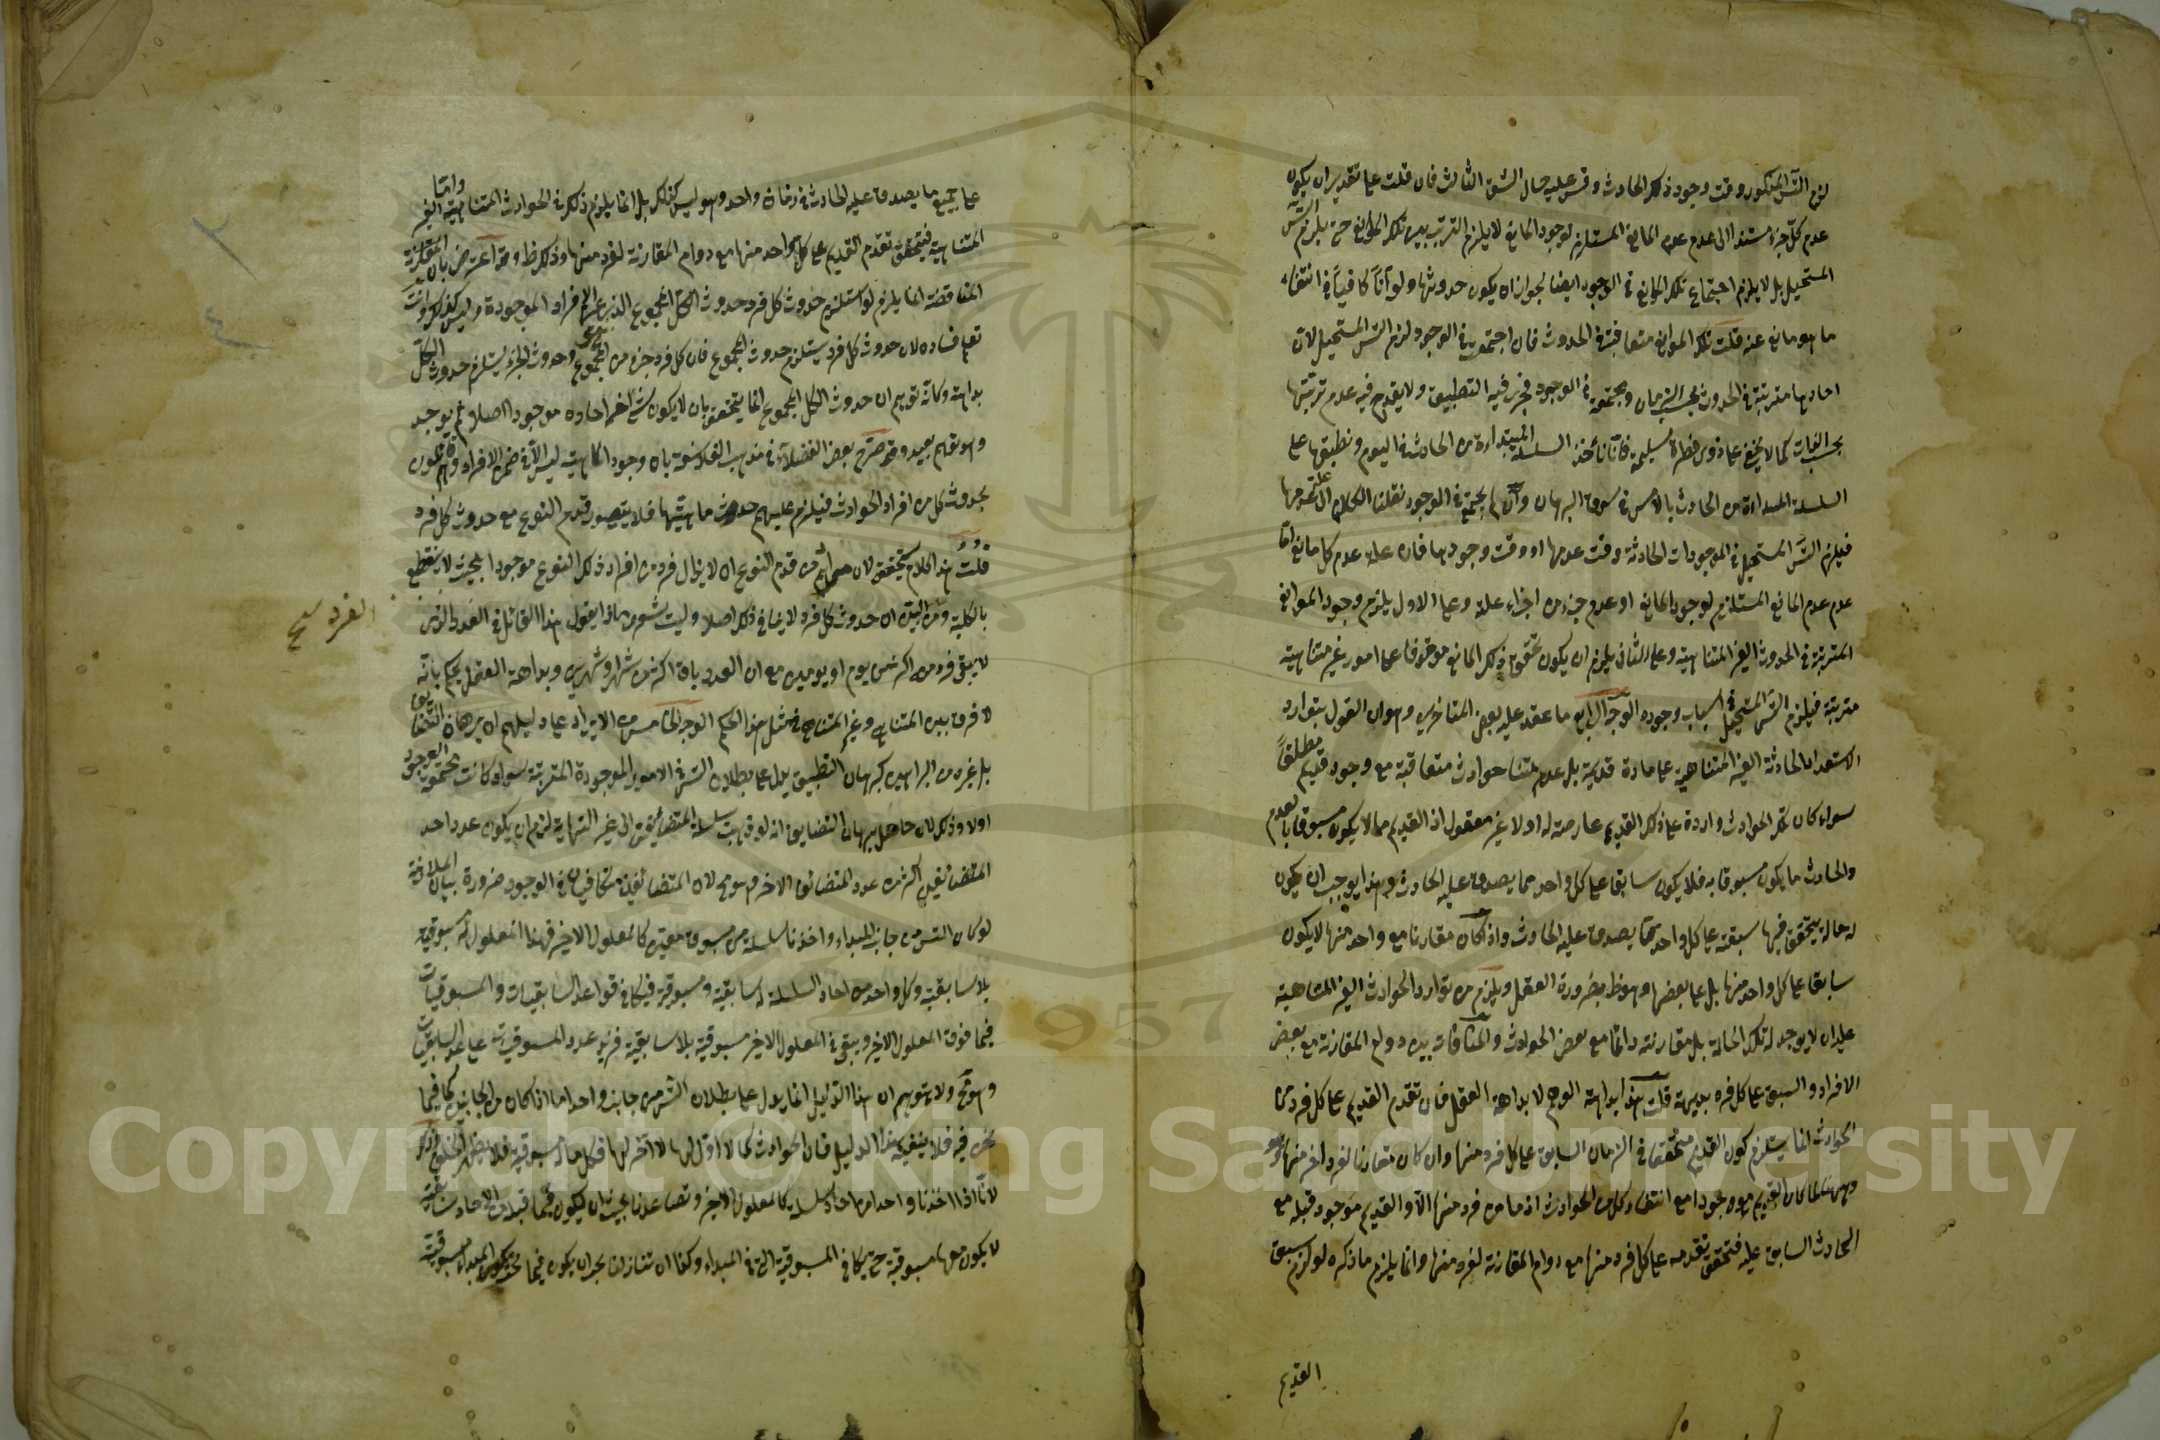 لزم التس المذكور وقت وجود ذلك الحادث وقس عليه حال الشق الثالث فان قلت على تقدير ان يكون
عدم كل جزء مستندا الى عدم عدم المانع المستلزم لوجود المانع لا يلزم الترتب بين تلك الموانع حتى يلزم التس
المستحيل بل لا يلزم اجتماع تلك الموانع في الوجود ايضا لجواز ان يكون حدوثها ولو آنًا كافيا في انتفاء
ما هو مانع عنه قلت تلك الموانع متعاقبة في الحدوث فان اجتمعت في الوجود لزم التس المستحيل لان
احادها مترتبة في الحدوث بحسب الزمان ومجتمعة في الوجود فيجري فيه التطبيق ولا يقدح فيه عدم ترتبها
بحسب الذات كما لا يخفى على ذوي فطرة سليمة فانا نأخذ السلسلة المبتداءة من الحادث في اليوم ونطبقها على
السلسلة المبتداءة من الحادث بالامس في سوق البرهان وان لم يجتمع في الوجود نقلنا الكلام الى علة عدمها
فيلزم التس المستحيل في الموجودات الحادثة وقت عدمها او وقت وجودها فان علة عدم كل مانع اما
عدم عدم المانع المستلزم لوجود المانع او عدم جزء من اجزاء علته وعلى الاول يلزم وجود الموانع
المترتبة في الحدوث الغير المتناهية وعلى الثاني يلزم ان يكون تحقق ذلك المانع موقوفا على امور غير متناهية
مترتبة فيلزم التس المستحيل في اسباب وجوده الوجه الرابع ما عقد عليه بعض المتاخرين وهو ان القول بتوارد
الاستعدادات الحادثة الغير المتناهية على مادة قديمة بل عدم تناهي حوادث متعاقبة مع وجود قديم مطلقا
سواء كان تلك الحوادث واردة على ذلك القديم عارضة له اولا غير معقول اذ القديم مما لا يكون مسبوقا بالعدم
والحادث ما يكون مسبوقا به فلا يكون سابقا على كل واحد مما يصدق عليه الحادث وهذا يوجب ان يكون
له حالة يتحقق فيها سبقته على كل واحد مما يصدق عليه الحادث واذا كان مقارنا مع واحد منها لا يكون
سابقا على كل واحد منها بل على بعضها وهو ظ بضرورة العقل ويلزم من توارد الحوادث الغير المتناهية
عليه ان لا يوجد له تلك الحالة بل مقارنته دائما مع بعض الحوادث والمنافات بين دوام المقارنة مع بعض
الافراد والسبق على كل فرد بديهية قلت هذا بداهة الوهم لا بداهة العقل فان تقدم القديم على كل فرد من
الحوادث انما يستلزم كون القديم متحققا في الزمان السابق على كل فرد منها وان كان مقارنا لفرد اخر منها
كان القديم موجودا مع انتفاء كل من الحوادث اذ ما من فرد منها الا والقديم موجود قبله مع
الحادث السابق عليه فتحقق تقدمه على كل فرد منها مع دوام المقارنة لفرد منها وانما يلزم ما ذكره لو لزم سبق
القديم
على جميع ما يصدق عليه الحادث في زمان واحد وهو ليس كذلك بل انما يلزم ذلك في الحوادث المتناهية واما الغير
المتناهية فيتحقق تقدم القديم على كل واحد منها مع دوام المقارنة لفرد منها وذلك ظ وقد اعترض بان المقارنة
المناقضة انما يلزم لو استلزم حدوث كل فرد حدوث الكل المجموع الافراد الموجودة وليس كذلك وانت
تعلم فساده لان حدوث كل فرد يستلزم حدوث المجموع فان كل فرد جزء من المجموع وحدوث الجزء يستلزم حدوث الكل
بداهة وكانه توهم ان حدوث الكل المجموع انما يتحقق بان لا يكون شئ من احاده موجودا اصلا ثم يوجد
وهو توهم بعيد وقد صرح بعض الفضلاء في مذهب الفلاسفة بان وجود الماهية ليس الا في ضمن الافراد وهم قائلون
بحدوث كل من افراد الحوادث فيلزم عليهم حدوث ماهيتها فلا يتصور قدم النوع مع حدوث كل فرد
قلت هذا الكلام لان مرادهم من قدم النوع ان لا يزال فرد من افراد ذلك النوع موجودا بحيث لا ينقطع
بالكلية ومن البين ان حدوث كل فرد لا ينافي ذلك اصلا وليت شعري ماذا يقول هذا القائل في الورد الذي
الفرد صح
لا يبقى فرد منه اكثر من يوم او يومين مع ان الورد باق اكثر من شهر او شهرين وبداهة العقل يحكم بانه
لا فرق بين المتناهي وغير المتناهي في مثل هذا الحكم الوجه الخامس من الايراد على دليلهم ان برهان التضايف
بل غيره من البراهين كبرهان التطبيق يدل على بطلان التس في الامور الموجودة المترتبة سواء كانت مجتمعة في الوجود
اولا وذلك لان حاصل برهان التضايف انه لو ذهبت سلسلة المتضائفين الى غير النهاية لزم ان يكون عدد احد
المتضائفين اكثر من عدد المتضائف الاخر وهو مح لان المتضائفين متكافيان في الوجود ضرورة بيان الملازمة
لو كان التس من جانب المبداء واخذنا سلسلة من مسبوق معين كالمعلول الاخير فهذا المعلول له مسبوقية
بلا سابقية وكل واحد من احاد السلسلة له سابقية ومسبوقية فيتكافى قواعد السابقيات والمسبوقيات
فيما فوق المعلول الاخير ويبقى في المعلول الاخير مسبوقية بلا سابقية فزيد عدد المسبوقيات على عدد السابقيات
وهو مح ولا يتوهم ان هذا الدليل انما يدل على بطلان التس من جانب واحد اما اذا كان من الجانبين كما فيما
نحن فيه فلا لان الحوادث كما لا اول لها لا اخر لها فكل ما له مسبوقية فله
لانا اذا اخذنا واحدا من احاد السلسلة كالمعلول الاخير وتصاعدنا يجب ان يكون فيما قبله من الاحاد سابقية
لا يكون معها مسبوقية حتى تكافى المسبوقية التي في المبداء وكذا ان تنازلنا يجب ان يكون فيما